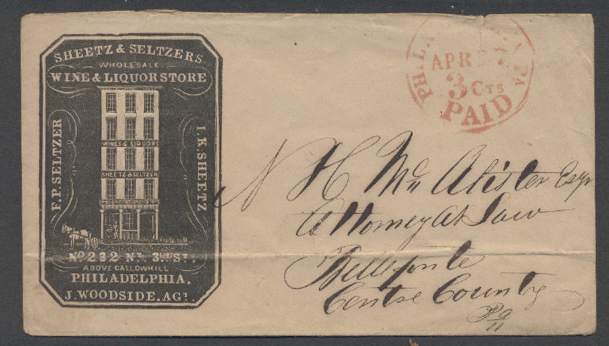 SHEETZ & SELTZERS
WHOLESALE
WINE & LIQUOR STORE
F. P. SELTZER
I. K. SHEETZ
WINES & LIQUORS
SHEETZ & SELTZER
No. 232 Nth. 3rd. St.
ABOVE CALLOWHILL
PHILADELPHIA.
J. WOODSIDE. AGT.
PHILADELPHIA Pa
APR
3 CTS
PAID
H N McAlister Esqr
Attorney At Law
Bellefonte
Centre County
Pa